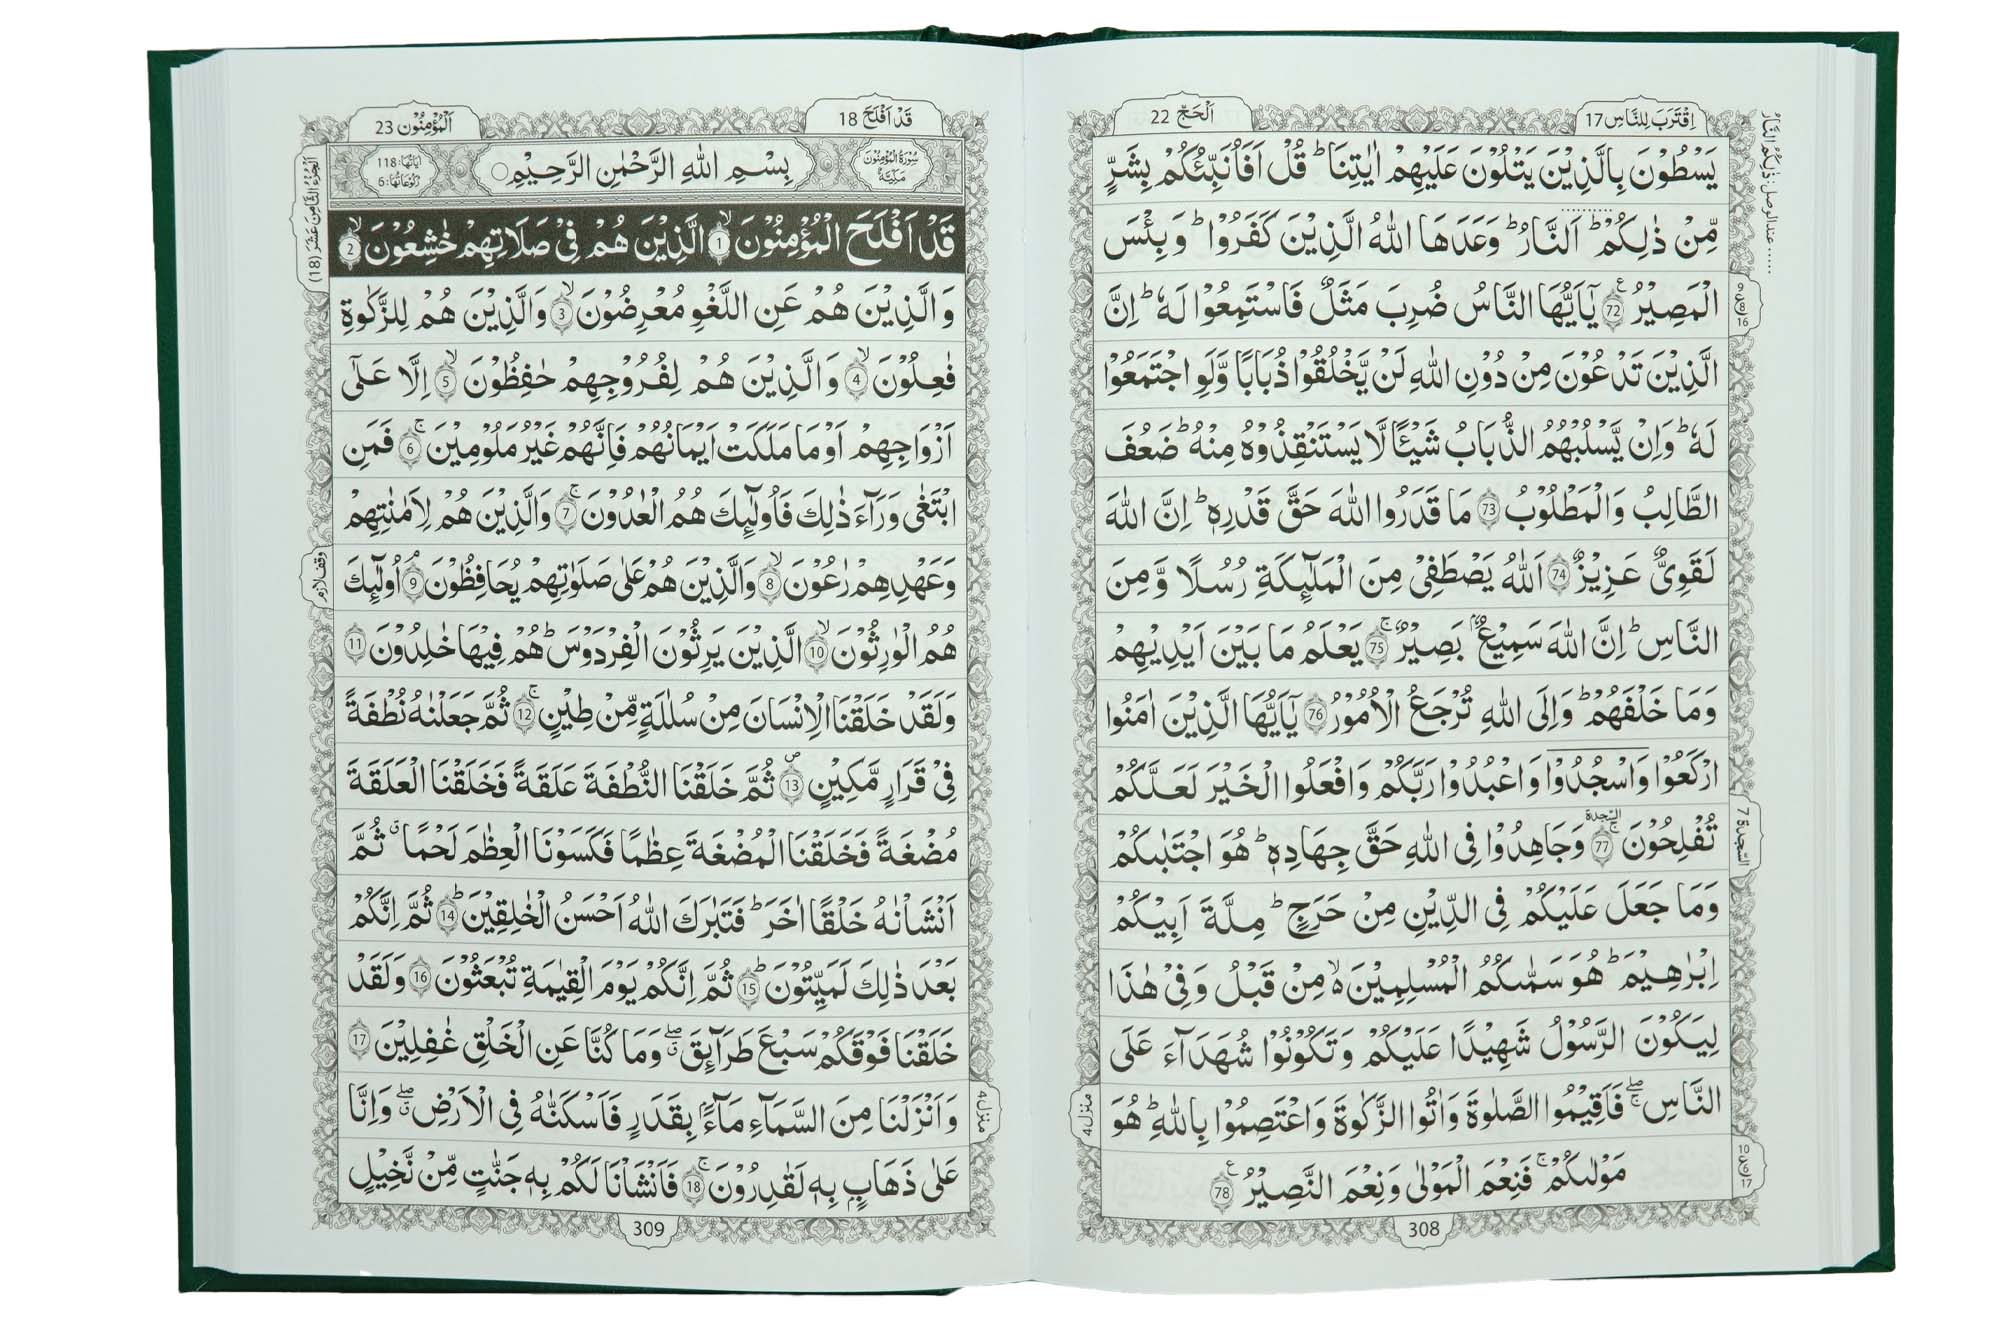 اِقْتَرَبَ لِلنَّاسِ 17
اَلْحَجّ 22
يَسْطُوْنَ بِالَّذِيْنَ يَتْلُوْنَ عَلَيْهِمْ اٰيٰتِنَا ؕ قُلْ اَفَاُنَبِّئُكُمْ بِشَرٍّ
مِّنْ ذٰلِكُمْ ؕ اَلنَّارُ ؕ وَعَدَهَا اللّٰهُ الَّذِيْنَ كَفَرُوْا ؕ وَبِئْسَ
الْمَصِيْرُ ࣖ 72 يٰۤاَيُّهَا النَّاسُ ضُرِبَ مَثَلٌ فَاسْتَمِعُوْا لَهٗ ؕ اِنَّ
الَّذِيْنَ تَدْعُوْنَ مِنْ دُوْنِ اللّٰهِ لَنْ يَّخْلُقُوْا ذُبَابًا وَّلَوِ اجْتَمَعُوْا
لَهٗ ؕ وَاِنْ يَّسْلُبْهُمُ الذُّبَابُ شَيْـًٔا لَّا يَسْتَنْقِذُوْهُ مِنْهُ ؕ ضَعُفَ
الطَّالِبُ وَالْمَطْلُوْبُ 73 مَا قَدَرُوا اللّٰهَ حَقَّ قَدْرِهٖ ؕ اِنَّ اللّٰهَ
لَقَوِىٌّ عَزِيْزٌ 74 اَللّٰهُ يَصْطَفِىْ مِنَ الْمَلٰٓئِكَةِ رُسُلًا وَّمِنَ
النَّاسِ ؕ اِنَّ اللّٰهَ سَمِيْعٌۢ بَصِيْرٌ ۚ 75 يَعْلَمُ مَا بَيْنَ اَيْدِيْهِمْ
وَمَا خَلْفَهُمْ ؕ وَاِلَى اللّٰهِ تُرْجَعُ الْاُمُوْرُ 76 يٰۤاَيُّهَا الَّذِيْنَ اٰمَنُوا
ارْكَعُوْا وَاسْجُدُوْا وَاعْبُدُوْا رَبَّكُمْ وَافْعَلُوا الْخَيْرَ لَعَلَّكُمْ
تُفْلِحُوْنَ ۚ السجدة 77 وَجَاهِدُوْا فِى اللّٰهِ حَقَّ جِهَادِهٖ ؕ هُوَ اجْتَبٰىكُمْ
وَمَا جَعَلَ عَلَيْكُمْ فِى الدِّيْنِ مِنْ حَرَجٍ ؕ مِلَّةَ اَبِيْكُمْ
اِبْرٰهِيْمَ ؕ هُوَ سَمّٰىكُمُ الْمُسْلِمِيْنَ ۙ۬ مِنْ قَبْلُ وَفِىْ هٰذَا
لِيَكُوْنَ الرَّسُوْلُ شَهِيْدًا عَلَيْكُمْ وَتَكُوْنُوْا شُهَدَآءَ عَلَى
النَّاسِ ۖۚ فَاَقِيْمُوا الصَّلٰوةَ وَاٰتُوا الزَّكٰوةَ وَاعْتَصِمُوْا بِاللّٰهِ ؕ هُوَ
مَوْلٰىكُمْ ۚ فَنِعْمَ الْمَوْلٰى وَنِعْمَ النَّصِيْرُ ࣖ 78
8
16
السجدة 7
منزل 4
10
17
308
قَدْ اَفْلَحَ 18
اَلْمُؤْمِنُوْن 23
سُوْرَةُ الْمُؤْمِنُوْنَ مَكِّيَّةٌ
بِسْمِ اللّٰهِ الرَّحْمٰنِ الرَّحِيْمِ
اٰيَاتُهَا: 118
رُكُوْعَاتُهَا: 6
قَدْ اَفْلَحَ الْمُؤْمِنُوْنَ ۙ 1 الَّذِيْنَ هُمْ فِىْ صَلَاتِهِمْ خٰشِعُوْنَ ۙ 2
وَالَّذِيْنَ هُمْ عَنِ اللَّغْوِ مُعْرِضُوْنَ ۙ 3 وَالَّذِيْنَ هُمْ لِلزَّكٰوةِ
فٰعِلُوْنَ ۙ 4 وَالَّذِيْنَ هُمْ لِفُرُوْجِهِمْ حٰفِظُوْنَ ۙ 5 اِلَّا عَلٰٓى
اَزْوَاجِهِمْ اَوْ مَا مَلَكَتْ اَيْمَانُهُمْ فَاِنَّهُمْ غَيْرُ مَلُوْمِيْنَ ۚ 6 فَمَنِ
ابْتَغٰى وَرَآءَ ذٰلِكَ فَاُولٰٓئِكَ هُمُ الْعٰدُوْنَ ۚ 7 وَالَّذِيْنَ هُمْ لِاَمٰنٰتِهِمْ
وَعَهْدِهِمْ رٰعُوْنَ ۙ 8 وَالَّذِيْنَ هُمْ عَلٰى صَلَوٰتِهِمْ يُحَافِظُوْنَ ۘ 9 اُولٰٓئِكَ
هُمُ الْوٰرِثُوْنَ ۙ 10 الَّذِيْنَ يَرِثُوْنَ الْفِرْدَوْسَ ؕ هُمْ فِيْهَا خٰلِدُوْنَ 11
وَلَقَدْ خَلَقْنَا الْاِنْسَانَ مِنْ سُلٰلَةٍ مِّنْ طِيْنٍ ۚ 12 ثُمَّ جَعَلْنٰهُ نُطْفَةً
فِىْ قَرَارٍ مَّكِيْنٍ ص 13 ثُمَّ خَلَقْنَا النُّطْفَةَ عَلَقَةً فَخَلَقْنَا الْعَلَقَةَ
مُضْغَةً فَخَلَقْنَا الْمُضْغَةَ عِظٰمًا فَكَسَوْنَا الْعِظٰمَ لَحْمًا ق ثُمَّ
اَنْشَاْنٰهُ خَلْقًا اٰخَرَ ؕ فَتَبٰرَكَ اللّٰهُ اَحْسَنُ الْخٰلِقِيْنَ ؕ 14 ثُمَّ اِنَّكُمْ
بَعْدَ ذٰلِكَ لَمَيِّتُوْنَ ؕ 15 ثُمَّ اِنَّكُمْ يَوْمَ الْقِيٰمَةِ تُبْعَثُوْنَ 16 وَلَقَدْ
خَلَقْنَا فَوْقَكُمْ سَبْعَ طَرَآئِقَ ۖق وَمَا كُنَّا عَنِ الْخَلْقِ غٰفِلِيْنَ 17
وَاَنْزَلْنَا مِنَ السَّمَآءِ مَآءًۢ بِقَدَرٍ فَاَسْكَنّٰهُ فِى الْاَرْضِ ۖق وَاِنَّا
عَلٰى ذَهَابٍۢ بِهٖ لَقٰدِرُوْنَ ۚ 18 فَاَنْشَاْنَا لَكُمْ بِهٖ جَنّٰتٍ مِّنْ نَّخِيْلٍ
اَلْجُزْءُ الثَّامِنَ عَشَرَ (18)
وقف لازم
منزل 4
309